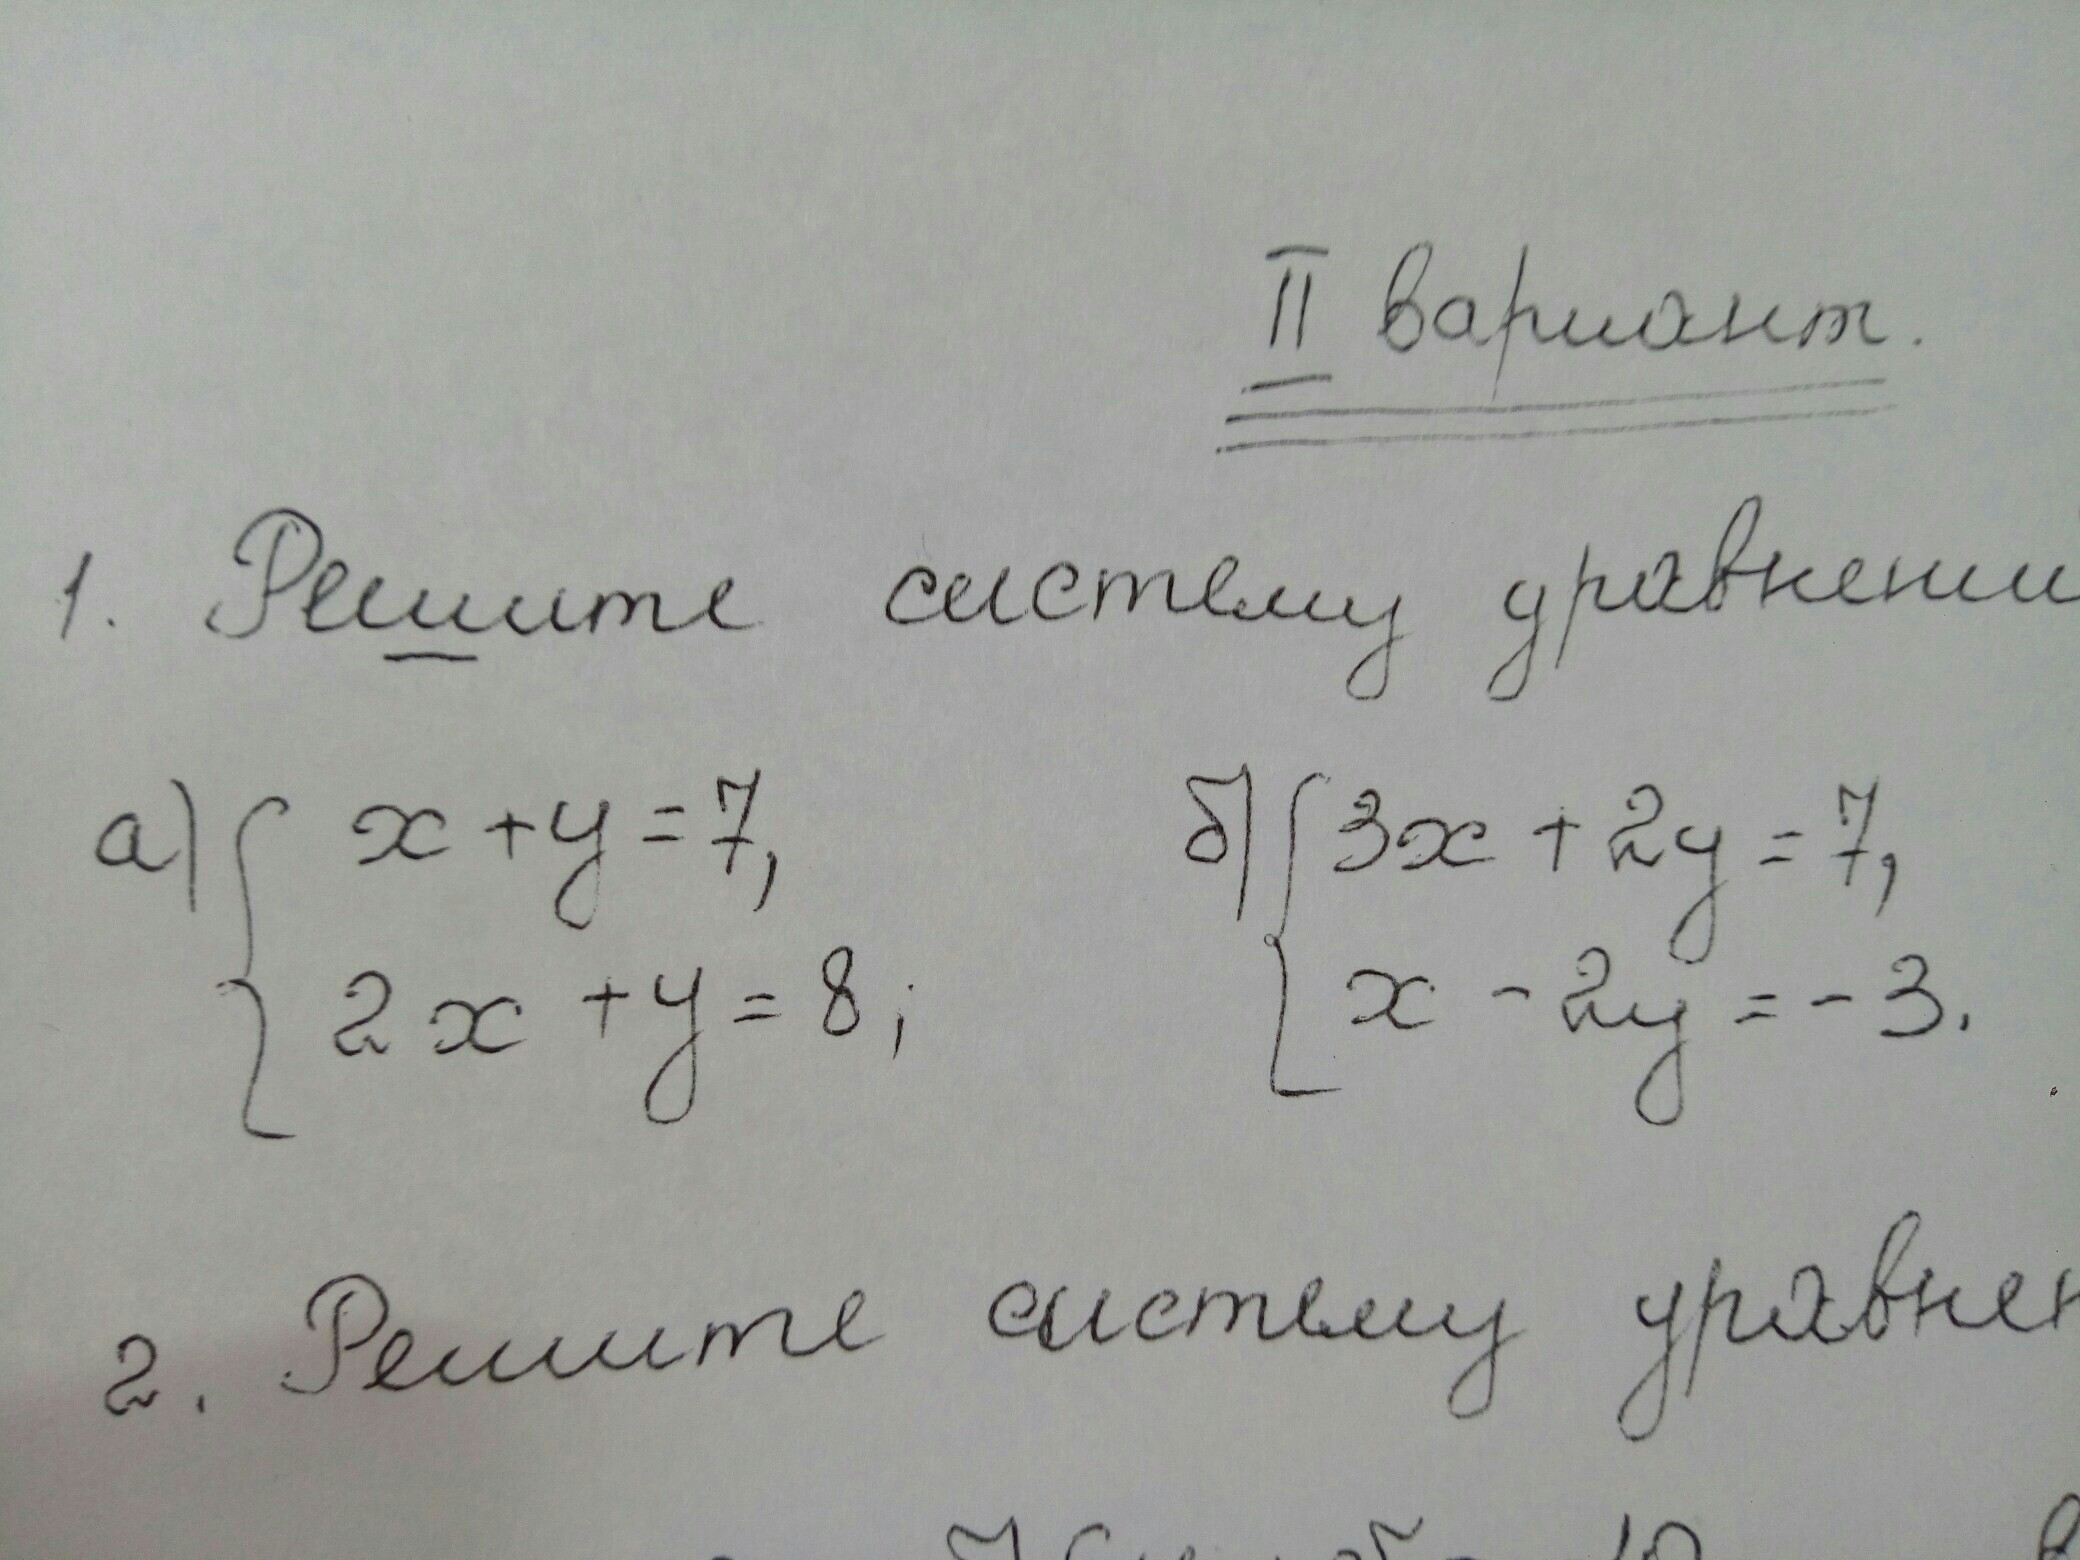 II вариант.
1. Решите систему уравнени
а) { x + y = 7, б) { 3x + 2y = 7,
2x + y = 8; x - 2y = -3.
2. Решите систему уравнен